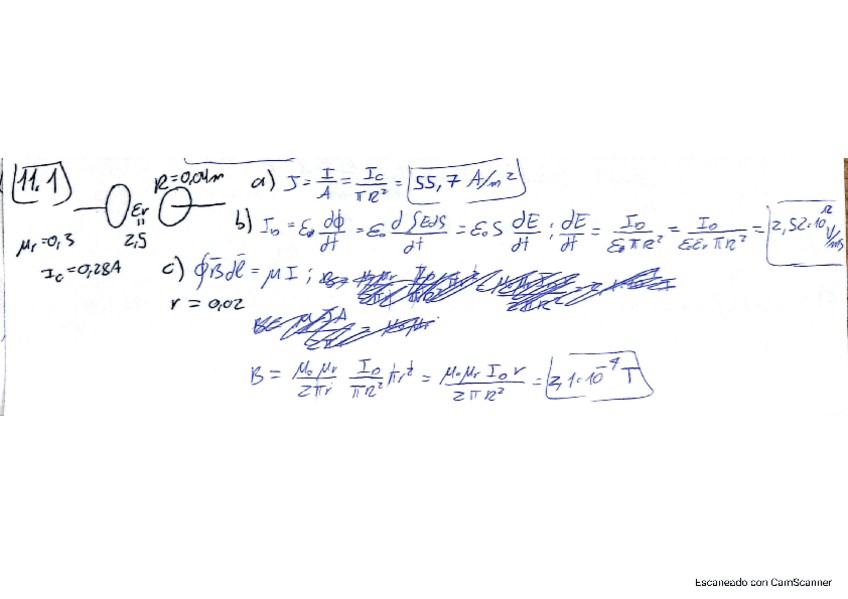 11.1
R=0,04m
εr = 2,5
μr=0,3
Ic=0,28A
a) J = I/A = Ic/πR² = 55,7 A/m²
b) I₀ = ε₀ dϕ/dt = ε₀ d∫EdS/dt = ε₀S dE/dt ; dE/dt = I₀/ε₀πR² = I₀/ε₀εrπR² = 2,52·10¹² V/ms
c) ∮B̄dl̄ = μI ;
r = 0,02
B = μ₀μr/2πr I₀/πR² πr² = μ₀μr I₀ r/2πR² = 2,1·10⁻⁷ T
Escaneado con CamScanner